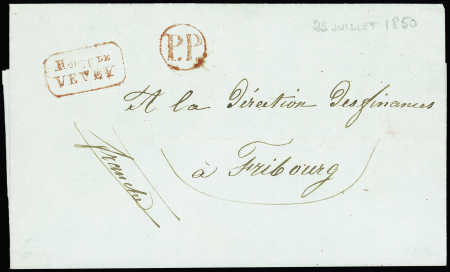 25 JUILLET 1850
P.P.
ROUTE DE
VEVEY
A la Direction Des finances
à Fribourg
franche